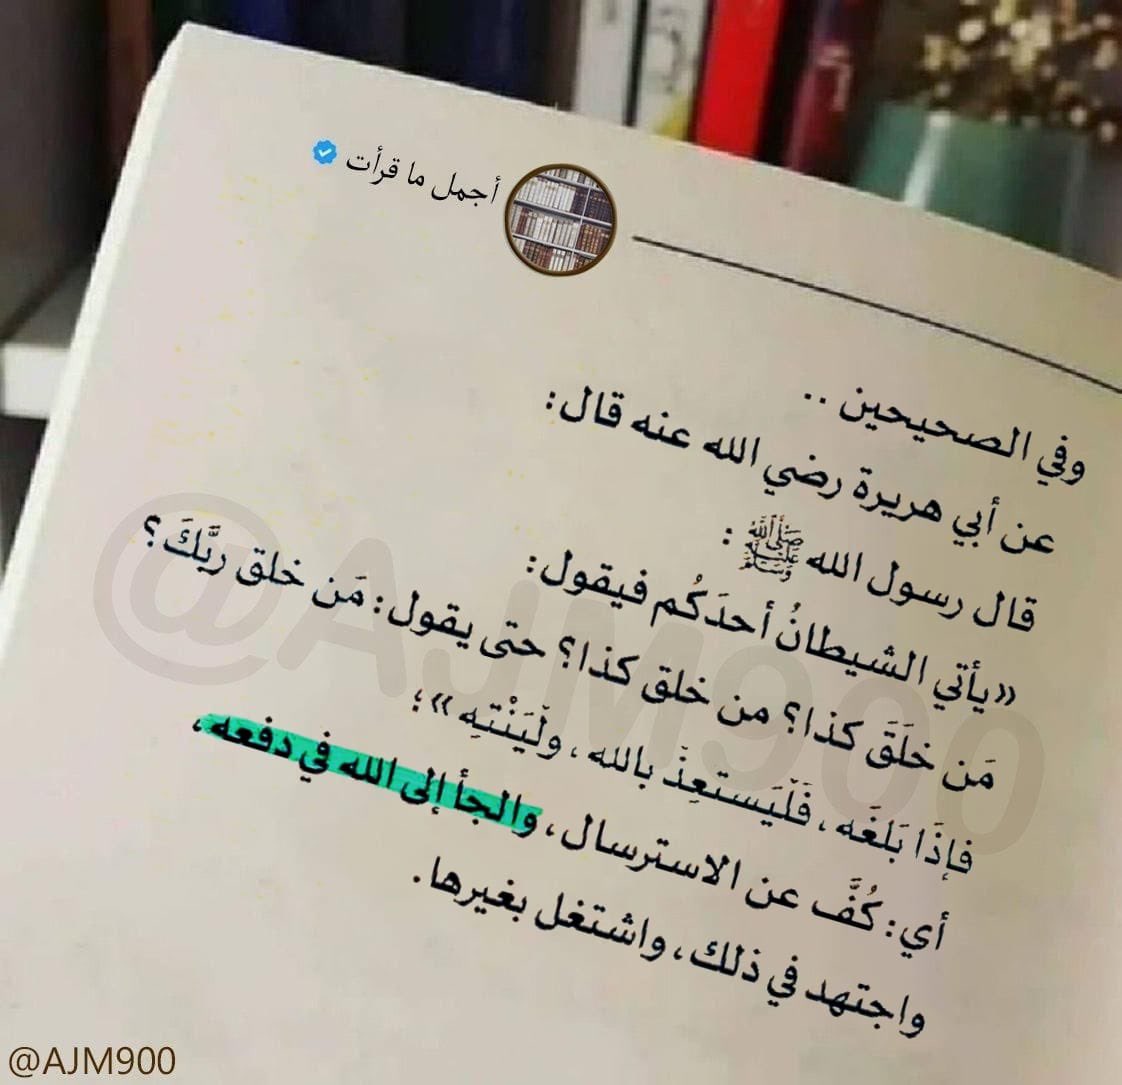 أجمل ما قرأت
وفي الصحيحين ..
عن أبي هريرة رضي الله عنه قال:
قال رسول الله ﷺ :
«يأتي الشيطانُ أحدَكُم فيقول:
مَن خلَقَ كذا؟ من خلق كذا؟ حتى يقول: مَن خلق ربَّكَ؟
فإذَا بَلغَه ، فَلْيَستعِذْ بالله ، ولْيَنْتهِ» ؛
أي: كُفَّ عن الاسترسال ، والجأ إلى الله في دفعه ،
واجتهد في ذلك ، واشتغل بغيرها .
@AJM900
@AJM900